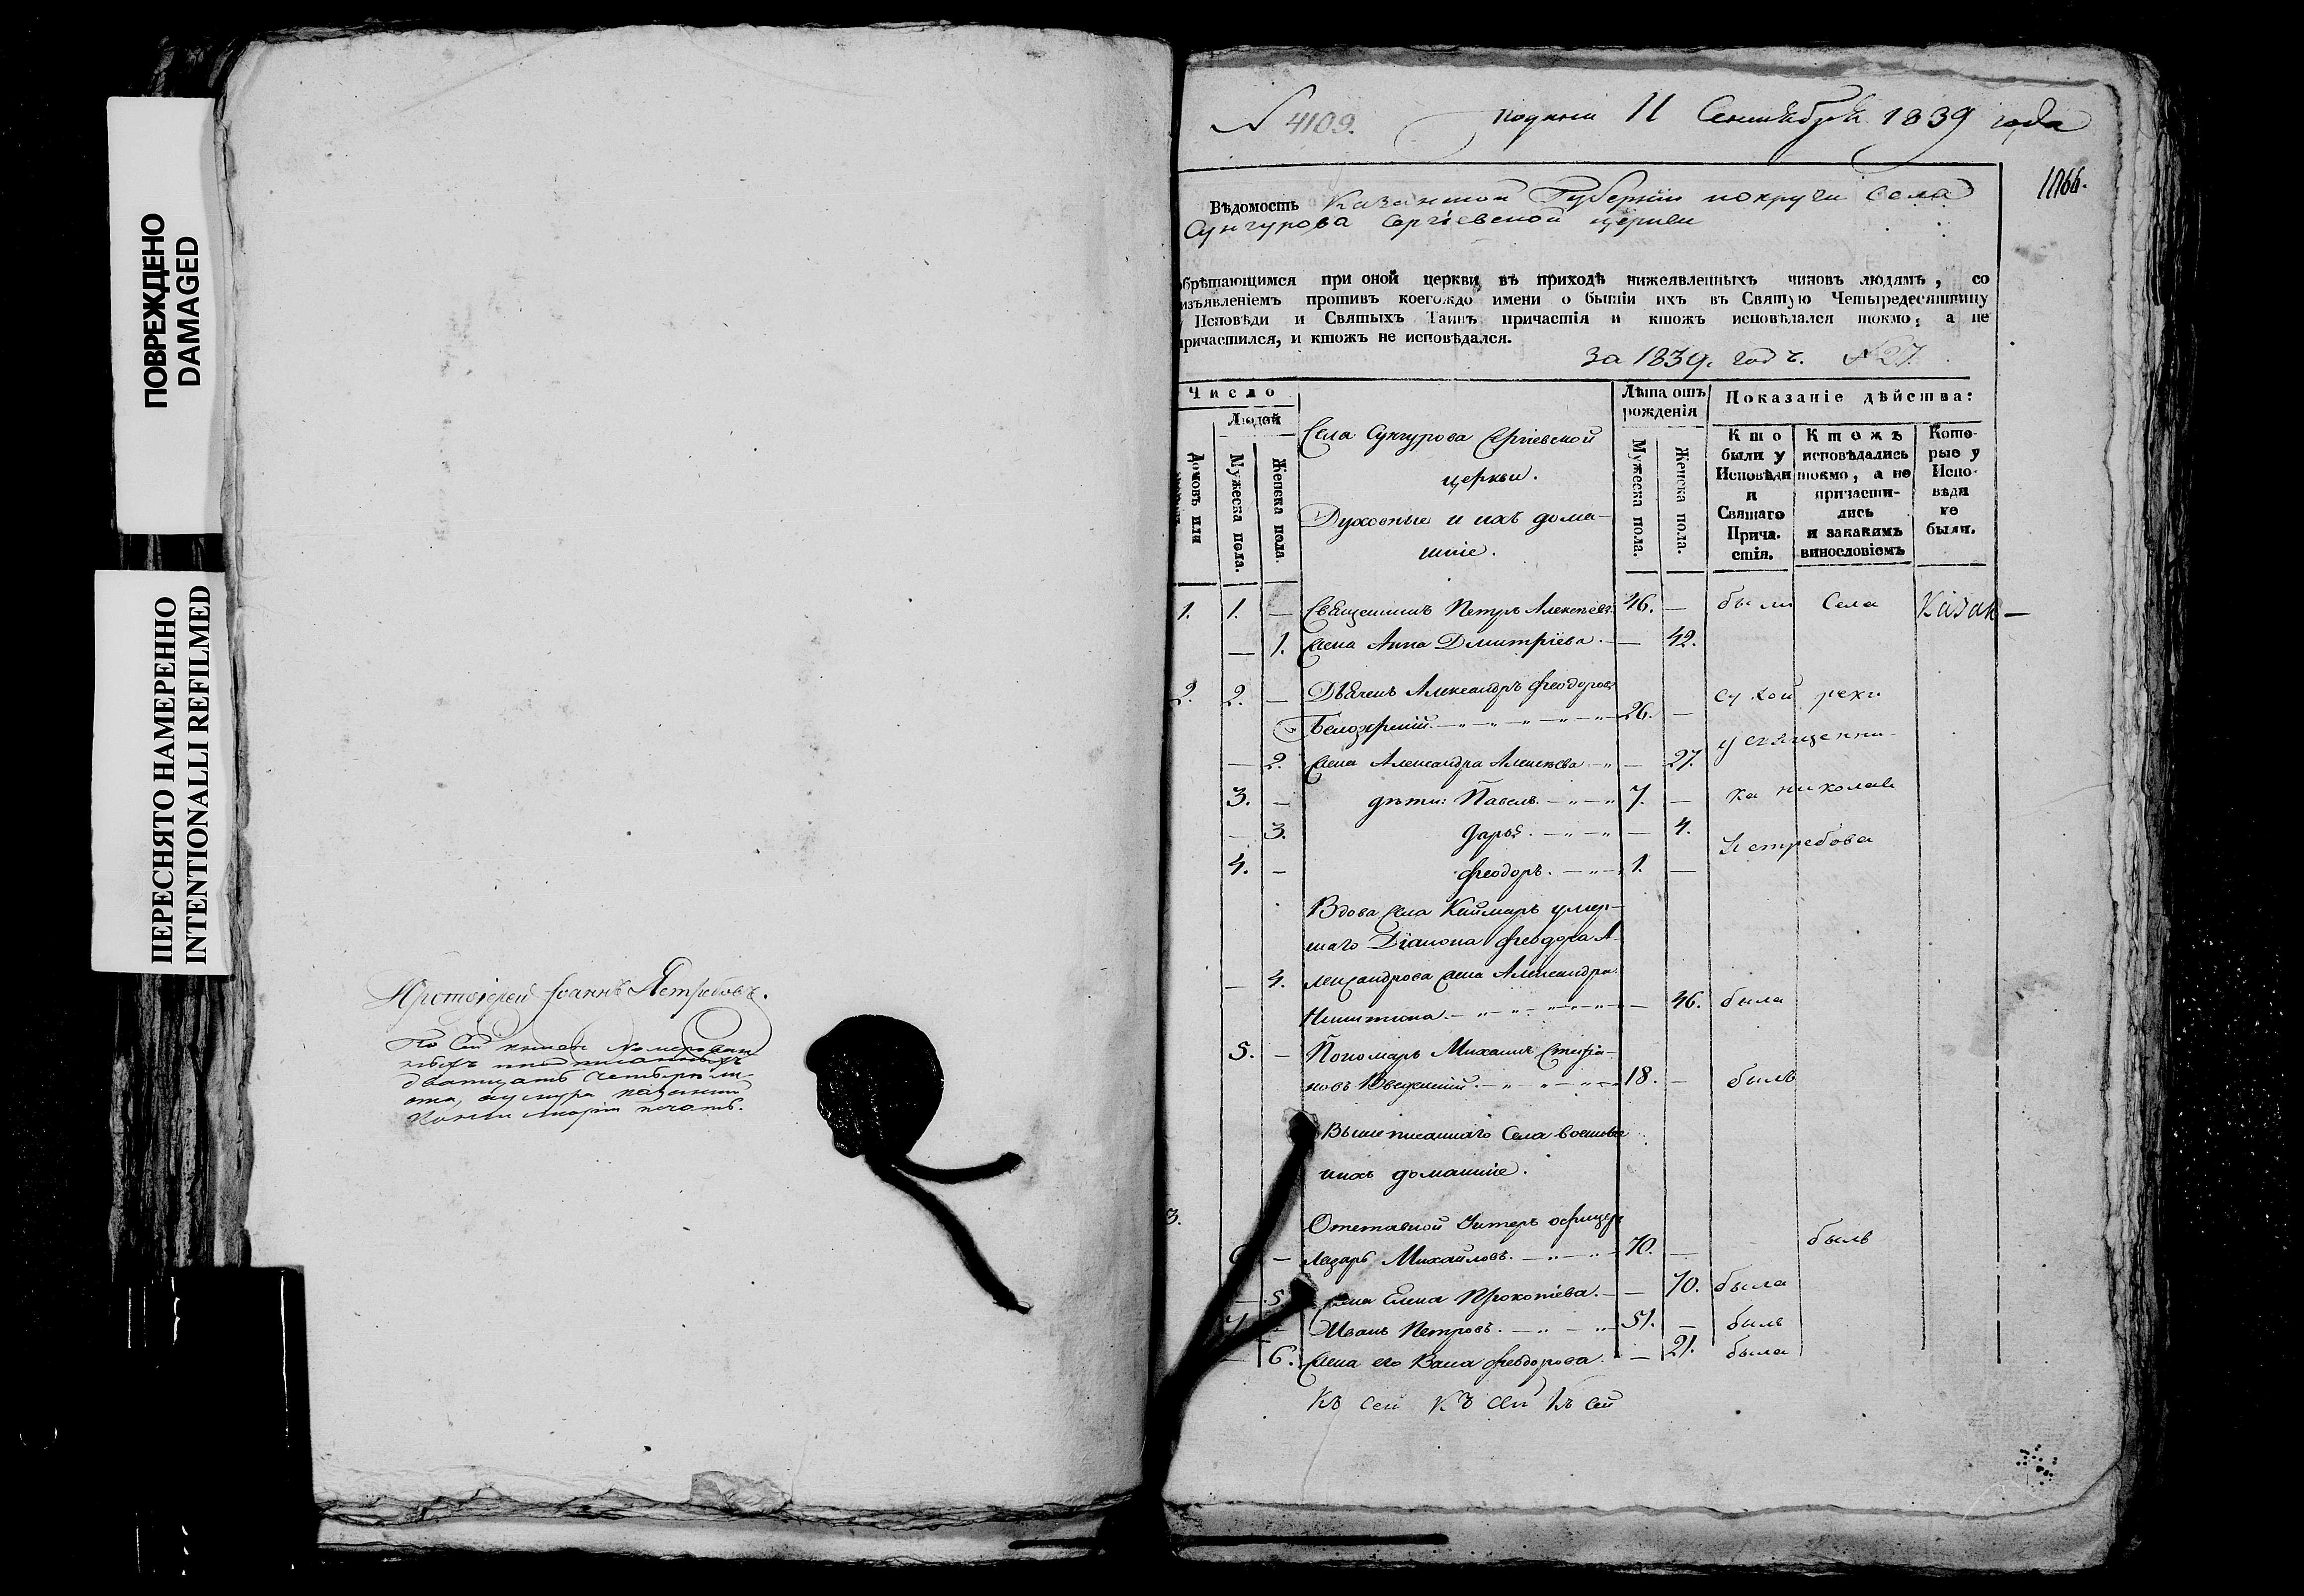 ПОВРЕЖДЕНО
DAMAGED
ПЕРЕСНЯТО НАМЕРЕННО
INTENTIONALLI REFILMED
Протоіерей Іоаннъ Ястребовъ.
По сей
дватцать четыре ли-
ста,
печать.
N 4109.
11 Сентября 1839 года
1066.
Вѣдомость Казанской Губерніи округи села
Сунгурова Сергіевской церкви
обрѣтающимся при оной церкви въ приходѣ нижеявленныхъ чиновъ людямъ, со
изъявленіемъ противъ коегождо имени о бытіи ихъ въ Святую Четыредесятницу
Исповѣди и Святыхъ Таинъ причастія и ктожъ исповѣдался токмо, а не
причастился, и ктожъ не исповѣдался.
За 1839. годъ. №27.
Число
Людей
Домовъ или
Мужеска пола.
Женска пола.
Села Сунгурова Сергіевской
церкви.
Духовные и ихъ дома-
шніе.
Лѣта отъ рожденія
Мужеска пола.
Женска пола.
Показаніе дѣйства:
Кто были у Исповѣди и Святаго Прича- стія.
Ктожъ исповѣдались токмо, а не причасти- лись и закакимъ винословіемъ
Кото- рые у Испо- вѣди не были.
1. 1. — Священникъ Петръ Алексѣевъ 46. — были Села Казан—
— 1. Жена Анна Димитріева. — 42.
2. 2. — Дьячекъ Александръ Феодоровъ
Белозерскій. 26. — Сухой реки
— 2. Жена Александра Алексѣева — 27. у священни-
3. — дѣти: Павелъ. 7. — ка николая
— 3. Дарья. — 4.
Ястребова
4. — Феодоръ. 1. —
Вдова села Каймаръ умер-
шаго Діакона Феодора А-
— 4. лександрова жена Александра
Никитина. — 46. была
5. — Пономарь Михаилъ Стефа-
новъ Введенскій. 18. — былъ
Вышеписаннаго Села военные
и ихъ домашніе.
3. Отставной Унтеръ офицеръ
— Лазарь Михайловъ. 70. — былъ
— 5. Жена Елена Прокопіева. — 70. была
7. — Иванъ Петровъ. 51. — былъ
— 6. Жена его Васса Феодорова. — 21. была
Къ сей Къ сей Къ сей